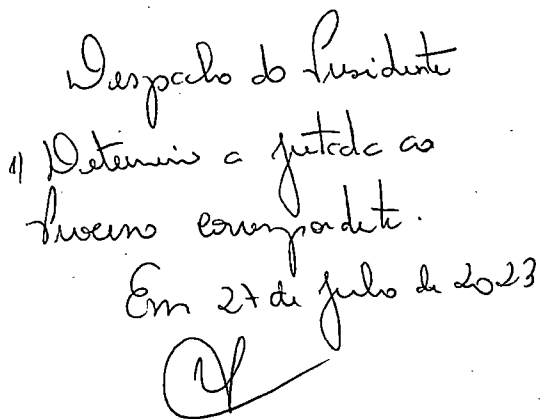 Despacho do Presidente
1) Determino a juntada ao
Processo correspondente.
Em 27 de julho de 2023